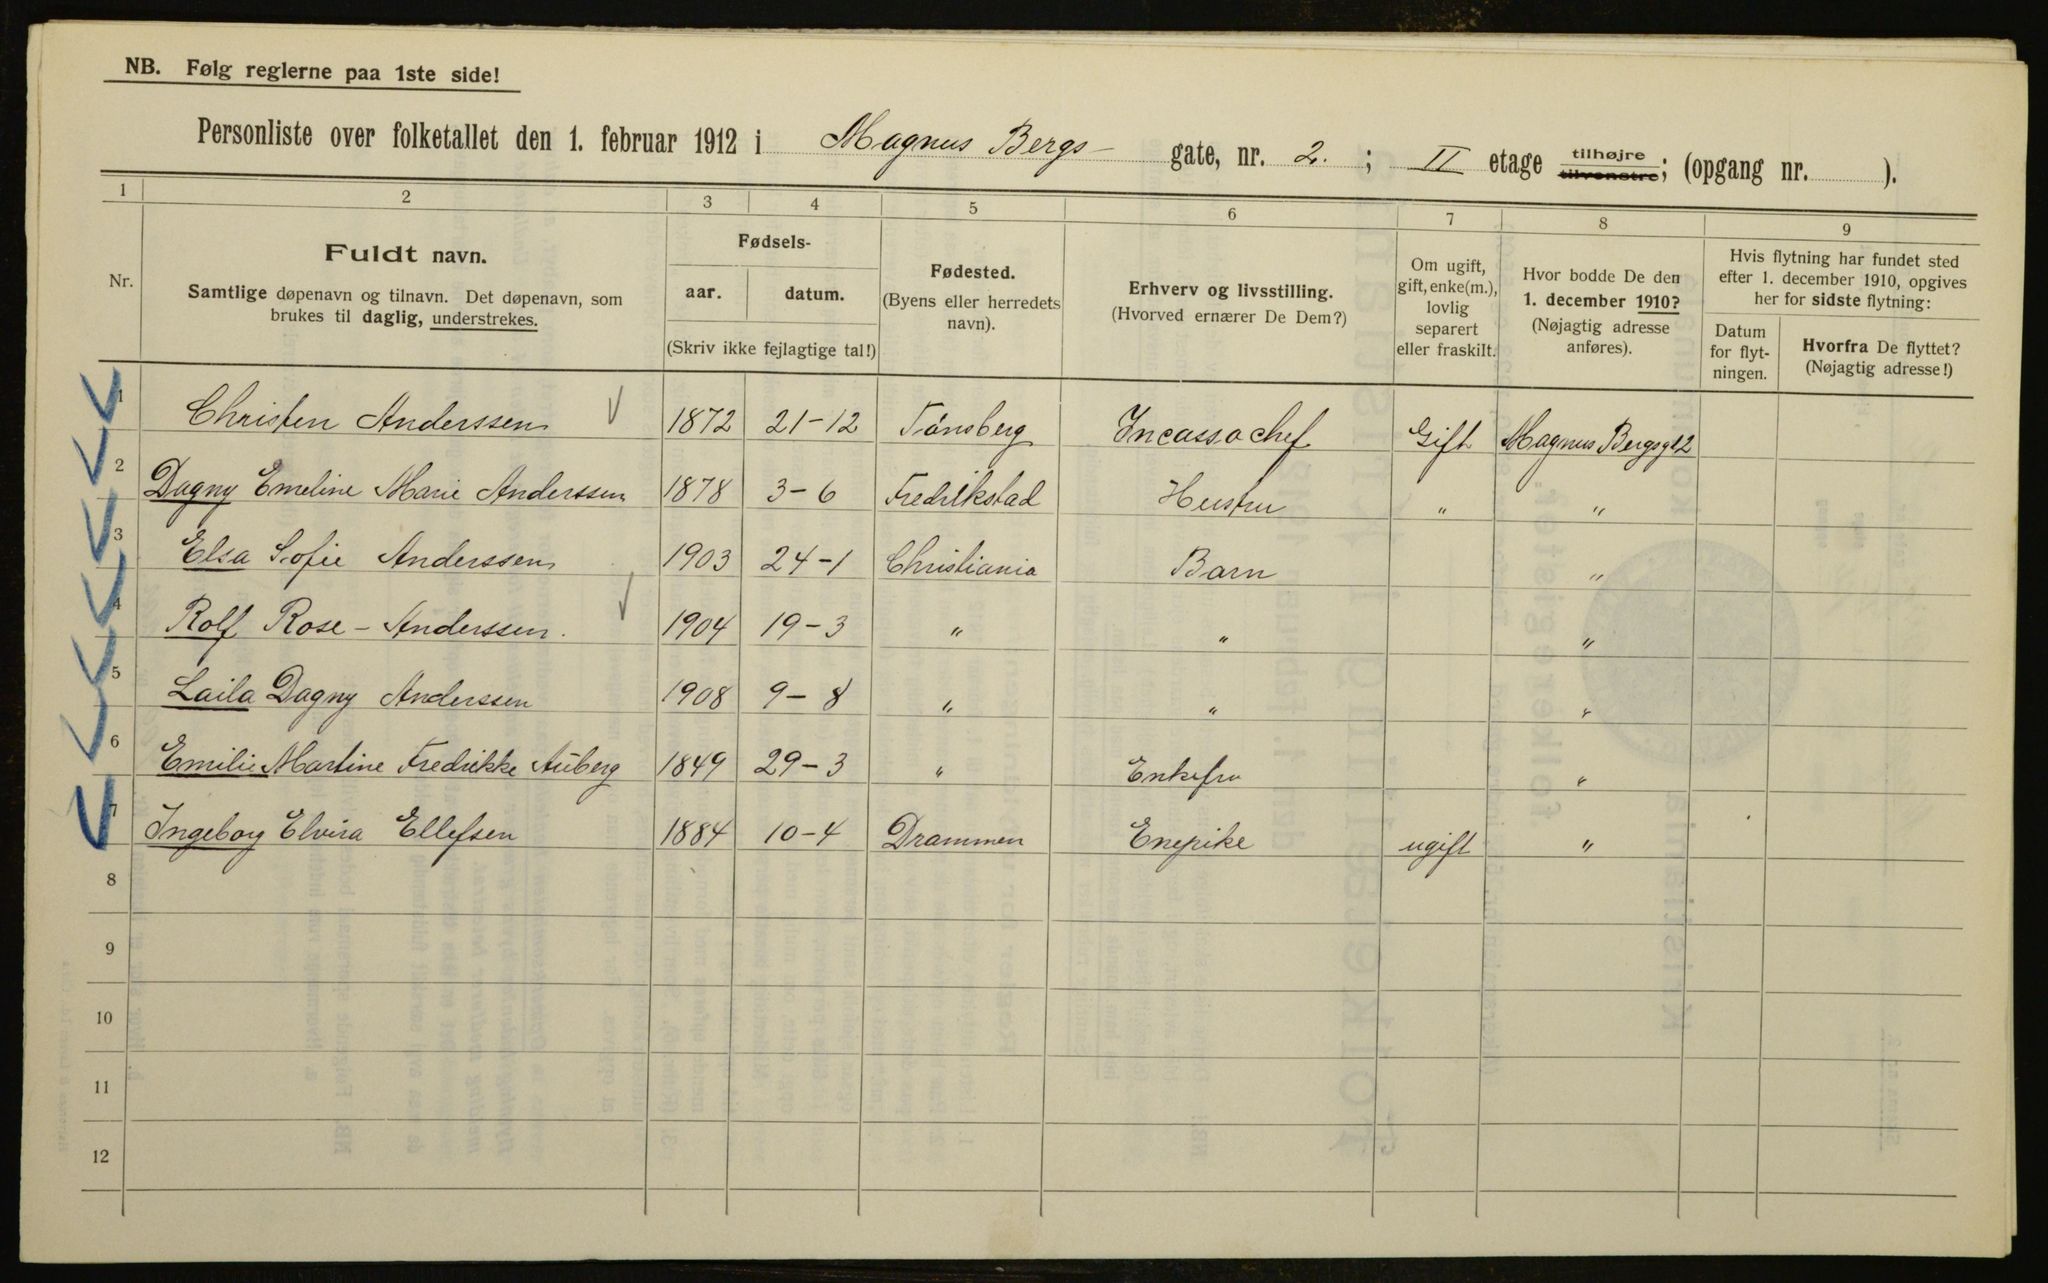 NB. Følg reglerne paa 1ste side!
Personliste over folketallet den 1. februar 1912 i Magnus Bergs gate, nr. 2. ; II etage tilhøjre tilvenstre; (opgang nr. ).
1 2 3 4 5 6 7 8 9
Nr.
Fuldt navn.
Samtlige døpenavn og tilnavn. Det døpenavn, som
brukes til daglig, understrekes.
Fødsels-
aar. datum.
(Skriv ikke fejlagtige tal!)
Fødested.
(Byens eller herredets
navn).
Erhverv og livsstilling.
(Hvorved ernærer De Dem?)
Om ugift,
gift, enke(m.),
lovlig
separert
eller fraskilt.
Hvor bodde De den
1. december 1910?
(Nøjagtig adresse
anføres).
Hvis flytning har fundet sted
efter 1. december 1910, opgives
her for sidste flytning:
Datum
for flyt-
ningen.
Hvorfra De flyttet?
(Nøjagtig adresse!)
1 Christen Anderssen 1872 21-12 Tønsberg Incassochef Gift Magnus Bergsgt 2
2 Dagny Emeline Marie Anderssen 1878 3-6 Fredrikstad Hustru " "
3 Elsa Sofie Anderssen 1903 24-1 Christiania Barn "
4 Rolf Rose-Anderssen. 1904 19-3 " " "
5 Laila Dagny Anderssen 1908 9-8 " " "
6 Emilie Martine Fredrikke Auberg 1849 29-3 " Enkefru "
7 Ingeborg Elvira Ellefsen 1884 10-4 Drammen Enepike ugift "
8
9
10
11
12